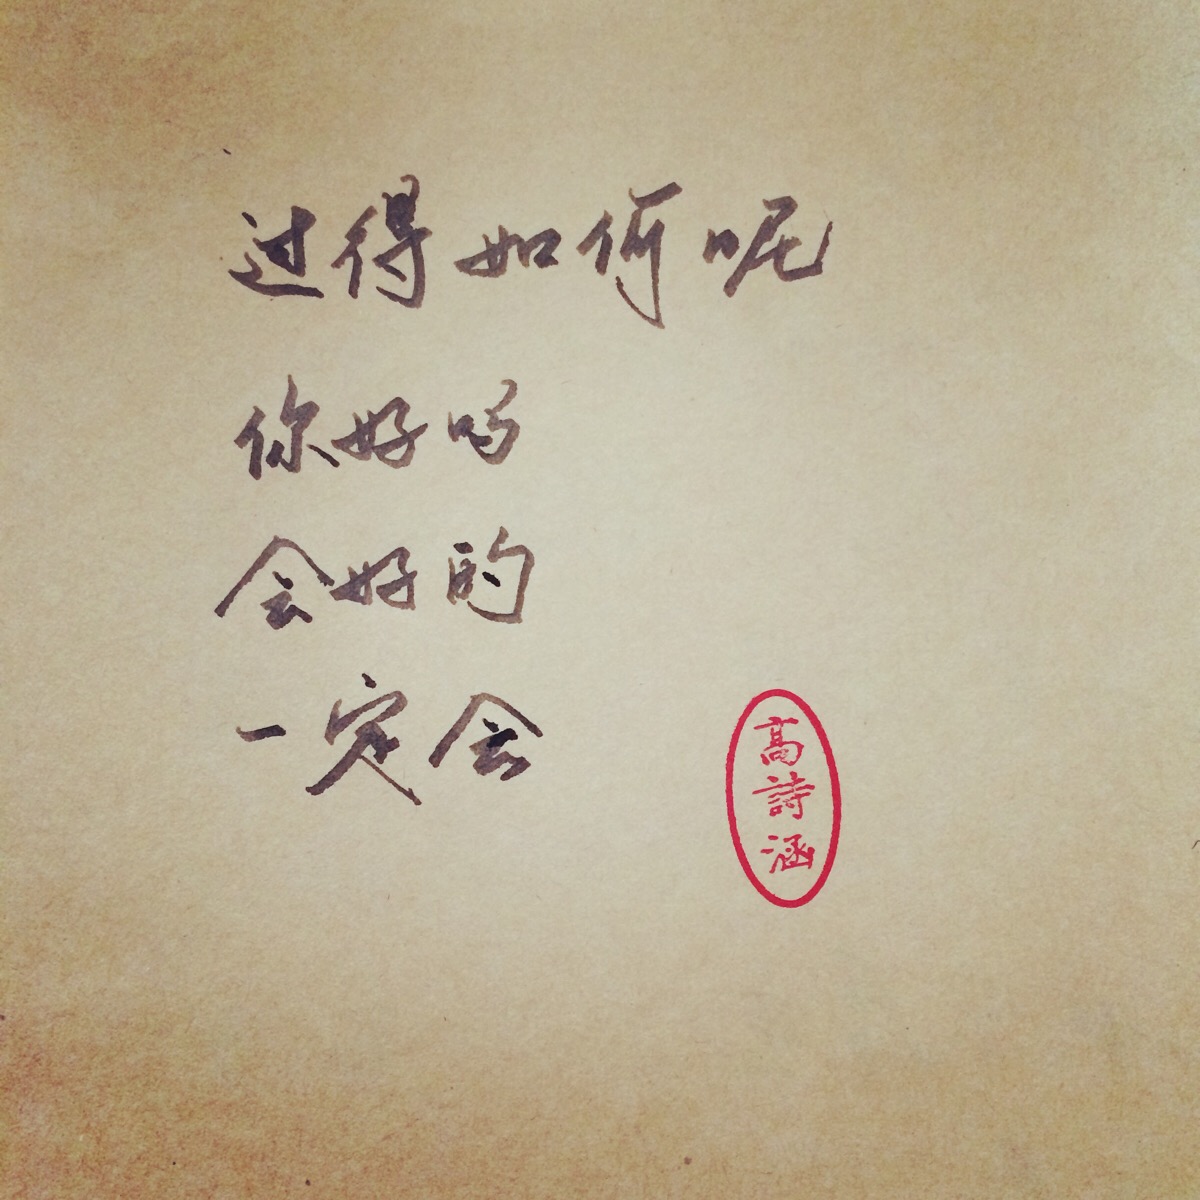 过得如何呢
你好吗
会好的
一定会
高詩涵